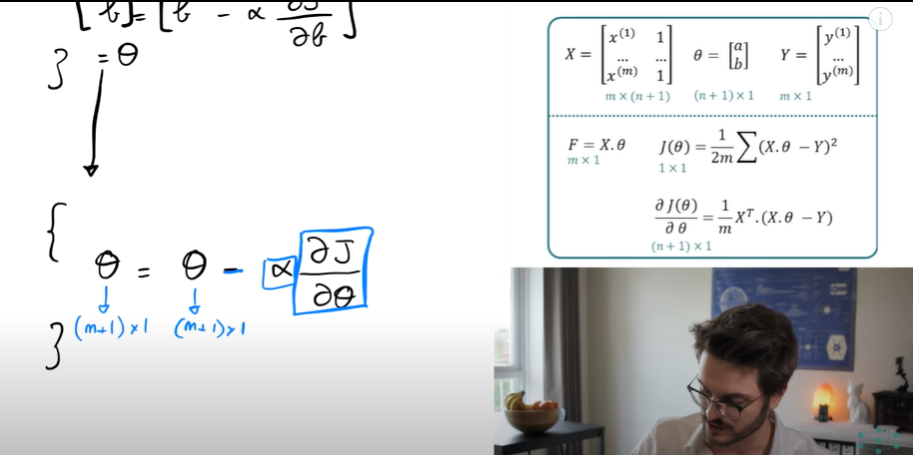 [b] = [b - α ∂J/∂b]
} = θ
{
θ = θ - α ∂J/∂θ
(n+1)×1 (n+1)×1
}
X = [x⁽¹⁾ 1 ... ... x⁽ᵐ⁾ 1] θ = [a b] Y = [y⁽¹⁾ ... y⁽ᵐ⁾]
m × (n + 1) (n + 1) × 1 m × 1
F = X.θ J(θ) = 1/2m ∑(X.θ − Y)²
m × 1 1 × 1
∂ J(θ)/∂ θ = 1/m Xᵀ.(X.θ − Y)
(n + 1) × 1